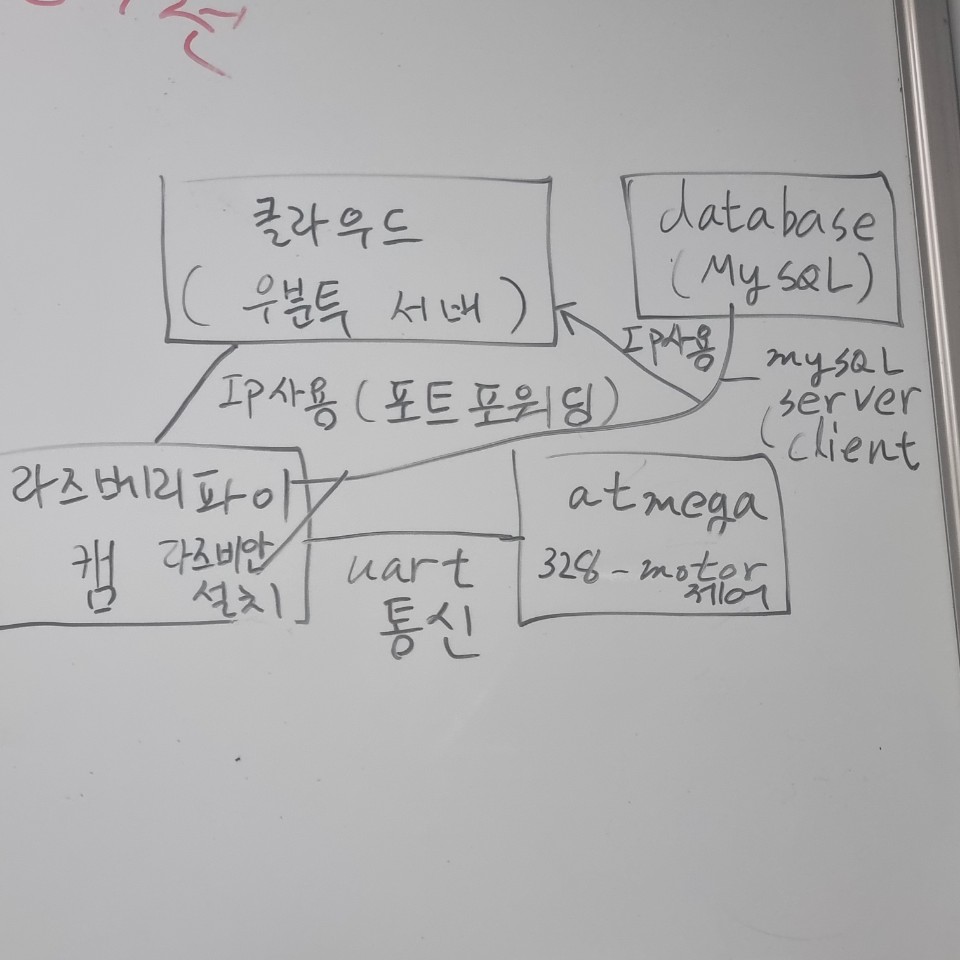 클라우드
(우분투 서버)
database
(MySQL)
IP사용
mySQL
server
client
IP사용 (포트포워딩)
라즈베리파이
캠 라즈비안
설치
uart
통신
atmega
328-motor
제어